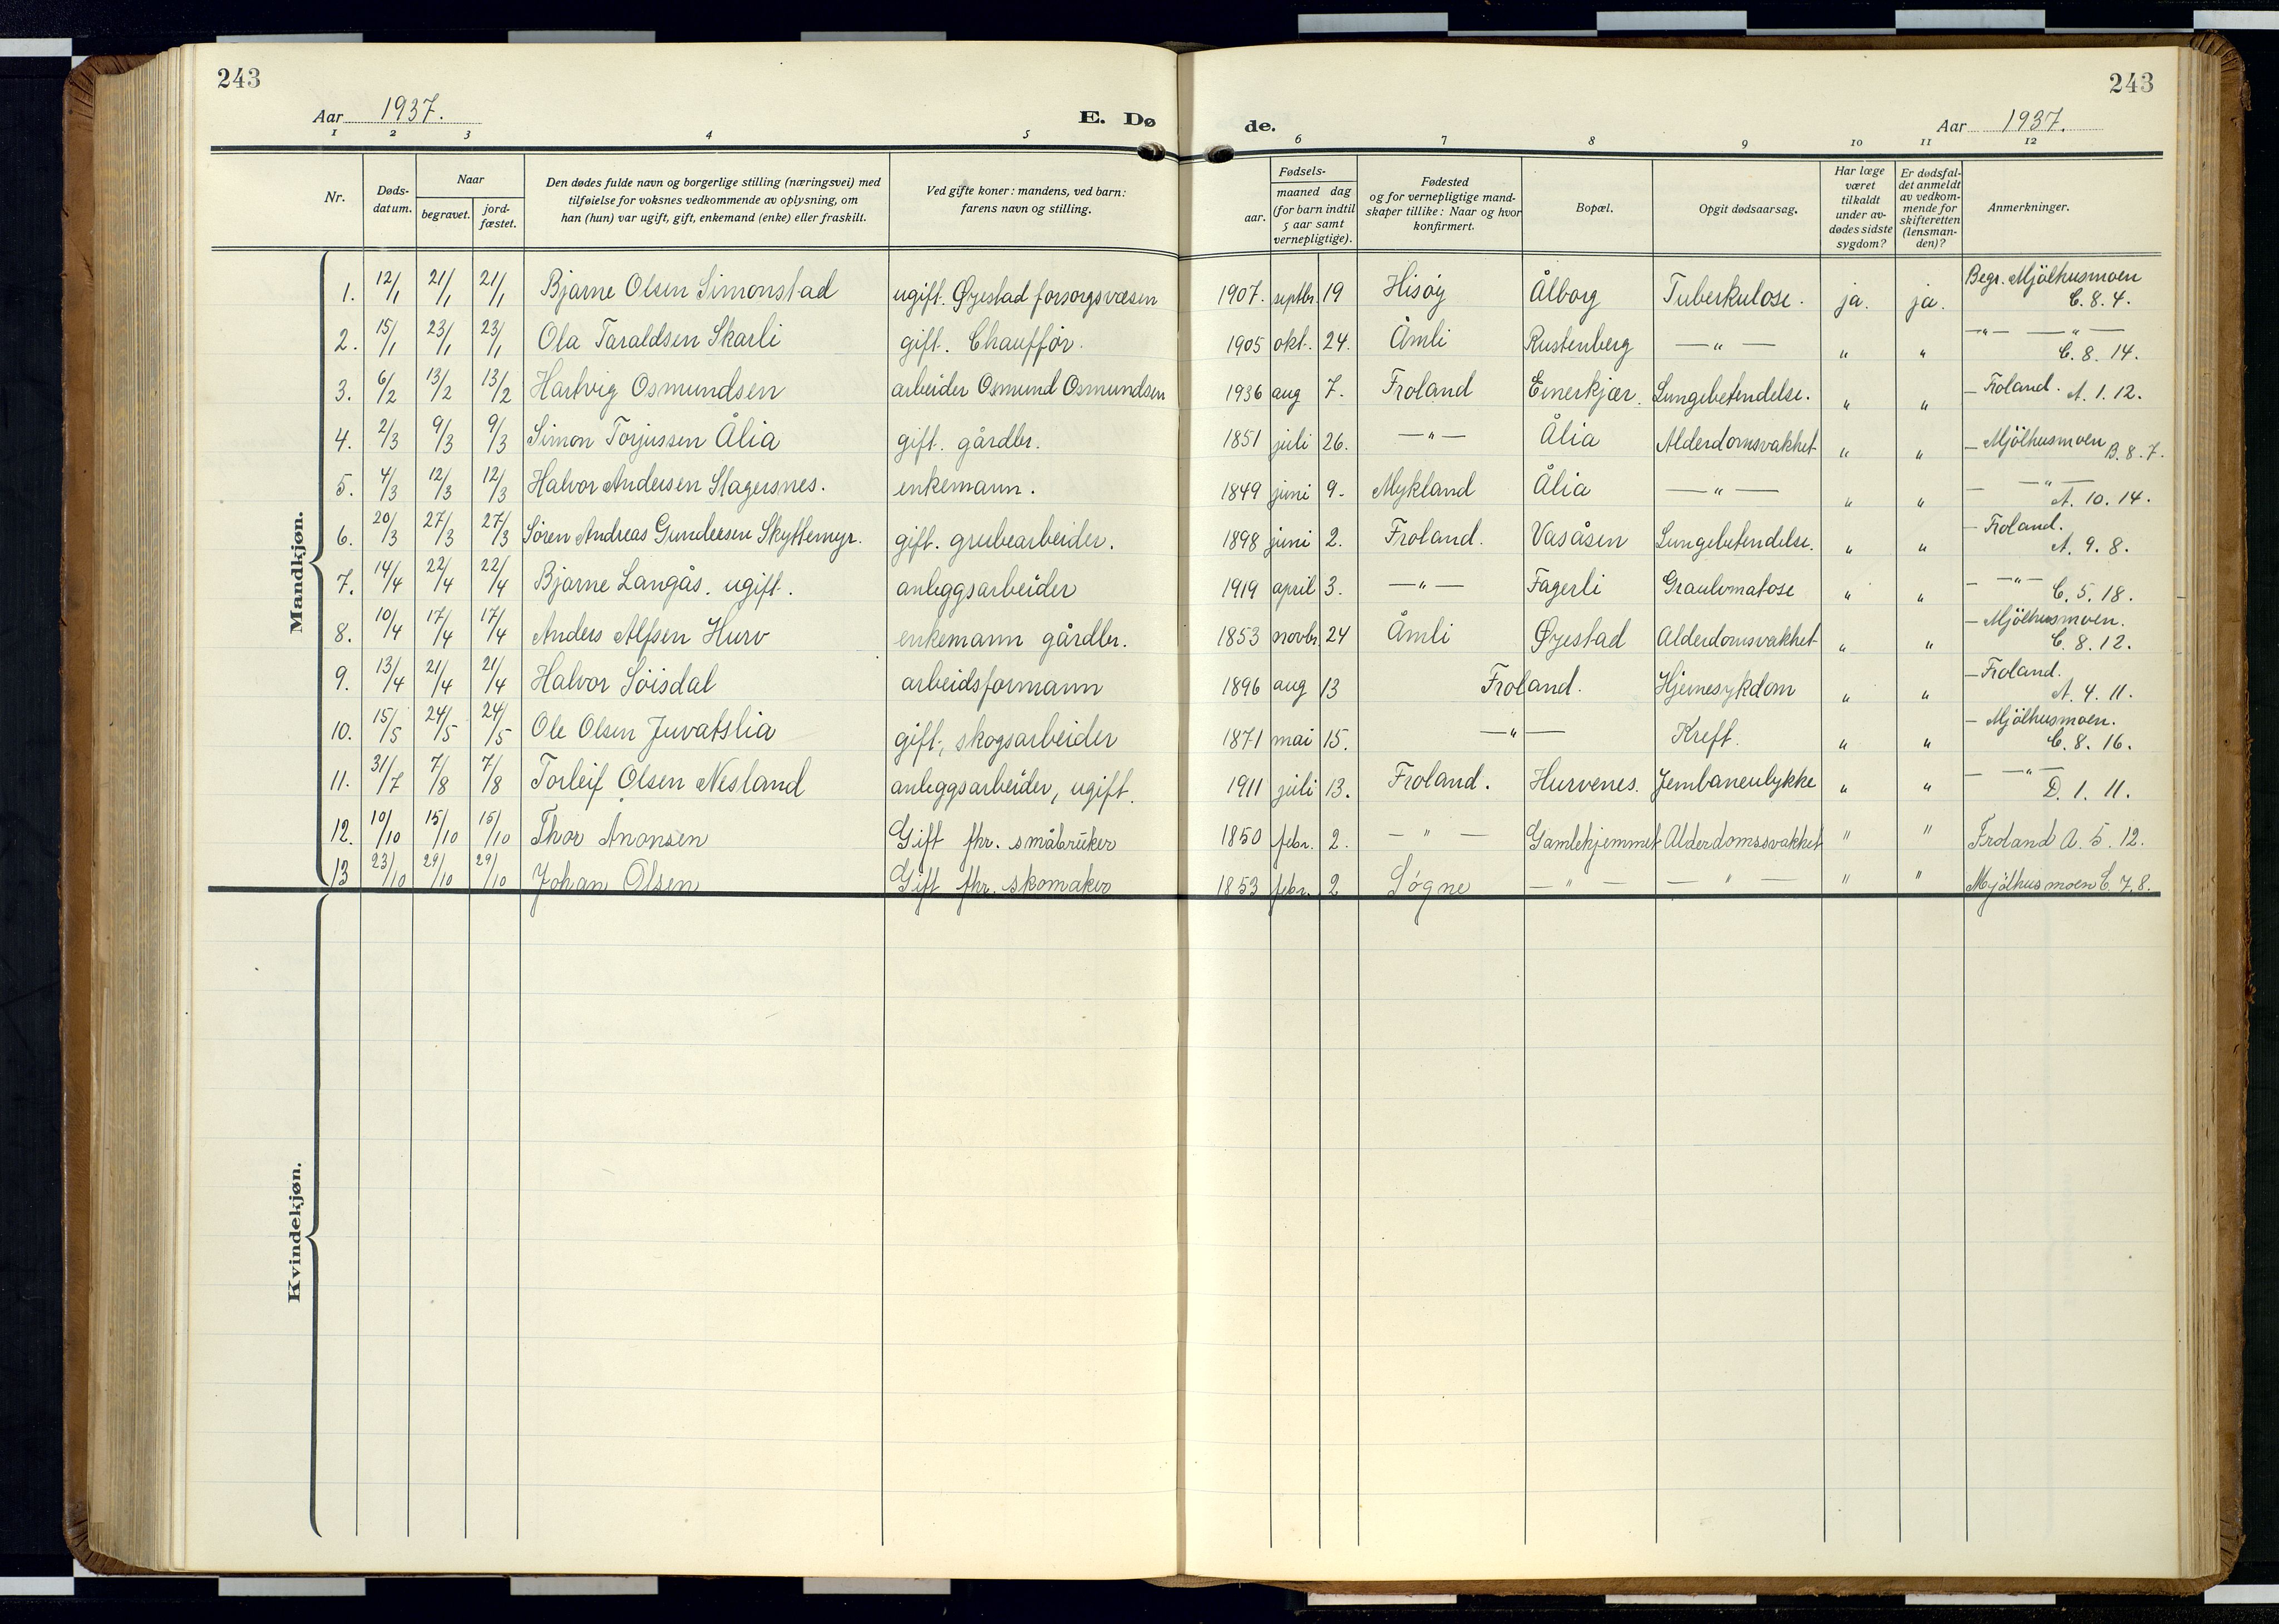 243
243
Aar 1937.
E. Dø
de.
Aar 1937.
1 2 3 4 5 6 7 8 9 10 11 12
Nr.
Døds-
datum.
Naar
begravet.
jord-
fæstet.
Den dødes fulde navn og borgerlige stilling (næringsvei) med
tilføielse for voksnes vedkommende av oplysning, om
han (hun) var ugift, gift, enkemand (enke) eller fraskilt.
Ved gifte koner: mandens, ved barn:
farens navn og stilling.
Fødsels-
aar.
maaned dag
(for barn indtil
5 aar samt
vernepligtige).
Fødested
og for vernepligtige mand-
skaper tillike: Naar og hvor
konfirmert.
Bopæl.
Opgit dødsaarsag.
Har læge
været
tilkaldt
under av-
dødes sidste
sygdom?
Er dødsfal-
det anmeldt
av vedkom-
mende for
skifteretten
(lensman-
den)?
Anmerkninger.
Mandkjøn.
1. 12/1 21/1 21/1 Bjarne Olsen Simonstad ugift. Øyestad forsorgsvæsen 1907. septbr. 19 Hisøy Ålborg Tuberkulose. ja. ja. Begr. Mjölhusmoen
C. 8. 4.
2. 15/1 23/1 23/1 Ola Taraldsen Skarli gift. Chauffør. 1905 okt. 24. Åmli Rustenberg —"— " " —"— —"—
C. 8. 14.
3. 6/2 13/2 13/2 Hartvig Osmundsen arbeider Osmund Osmundsen 1936 aug 7. Froland Einerkjær. Lungebetendelse. " " — Froland. A. 1. 12.
4. 2/3 9/3 9/3 Simon Torjussen Ålia gift. gårdbr. 1851 juli 26. —"— Ålia Alderdomsvakhet " " — Mjölhusmoen B. 8. 7.
5. 4/3 12/3 12/3 Halvor Andersen Slagersnes. enkemann. 1849 juni 9. Mykland Ålia —"— " " — —"—
A. 10. 14.
6. 20/3 27/3 27/3 Sören Andreas Gundersen Skyttemyr. gift. grubearbeider. 1898 juni 2. Froland. Vasåsen Lungebetendelse. " " — Froland.
A. 9. 8.
7. 14/4 22/4 22/4 Bjarne Langås. ugift. anleggsarbeider 1919 april 3. —"— Fagerli Graulomatose " " — —"—
C. 5. 18.
8. 10/4 17/4 17/4 Anders Alfsen Hurv enkemann gårdbr. 1853 novbr. 24 Åmli Øyestad Alderdomsvakhet " " — Mjölhusmoen.
C. 8. 12.
9. 13/4 21/4 21/4 Halvor Söisdal arbeidsformann 1896 aug 13 Froland. Hjernesykdom " " — Froland.
A. 4. 11.
10. 15/5 24/5 24/5 Ole Olsen Juvatslia gift, skogsarbeider 1871 mai 15. —"— Kreft. " " — Mjölhusmoen.
C. 8. 16.
11. 31/7 7/8 7/8 Torleif Olsen Nesland anleggsarbeider, ugift. 1911 juli 13. Froland. Hurvenes. Jernbaneulykke " " — —"—
D. 1. 11.
12. 10/10 15/10 15/10 Thor Anonsen Gift fhr. småbruker 1850 febr. 2. —"— Gamlehjemmet Alderdomssvakhet " " Froland A. 5. 12.
13 23/10 29/10 29/10 Johan Olsen Gift fhr. skomaker 1853 febr. 2 Søgne —"— —"— " " Mjölhusmoen C. 7. 8.
Kvindekjøn.